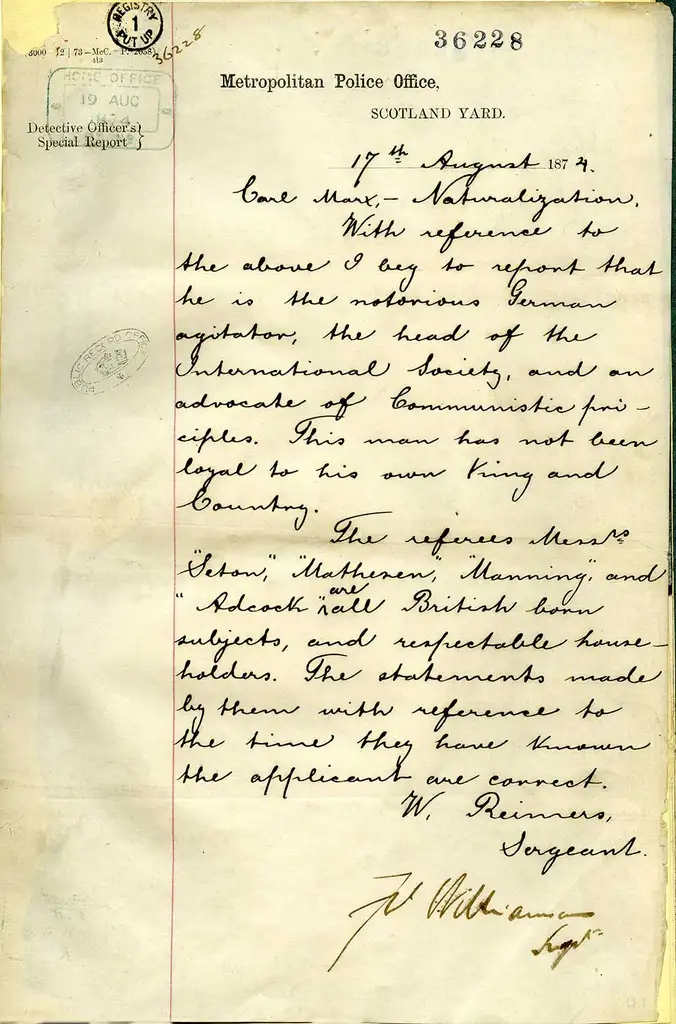 REGISTRY
1
PUT UP
36228
36228
HOME OFFICE
19 AUG
1874
Metropolitan Police Office,
SCOTLAND YARD.
Detective Officer's
Special Report
17th August 1874.
Carl Marx,- Naturalization.
With reference to
the above I beg to report that
he is the notorious German
agitator, the head of the
International Society, and an
advocate of Communistic pri-
ciples. This man has not been
loyal to his own King and
Country.
The referees Messrs
"Seton", "Mathesen", "Manning", and
"Adcock" are all British born
subjects, and respectable house-
holders. The statements made
by them with reference to
the time they have known
the applicant are correct.
W. Reimers,
Sergeant.
PUBLIC RECORD OFFICE
Williamson
Supt